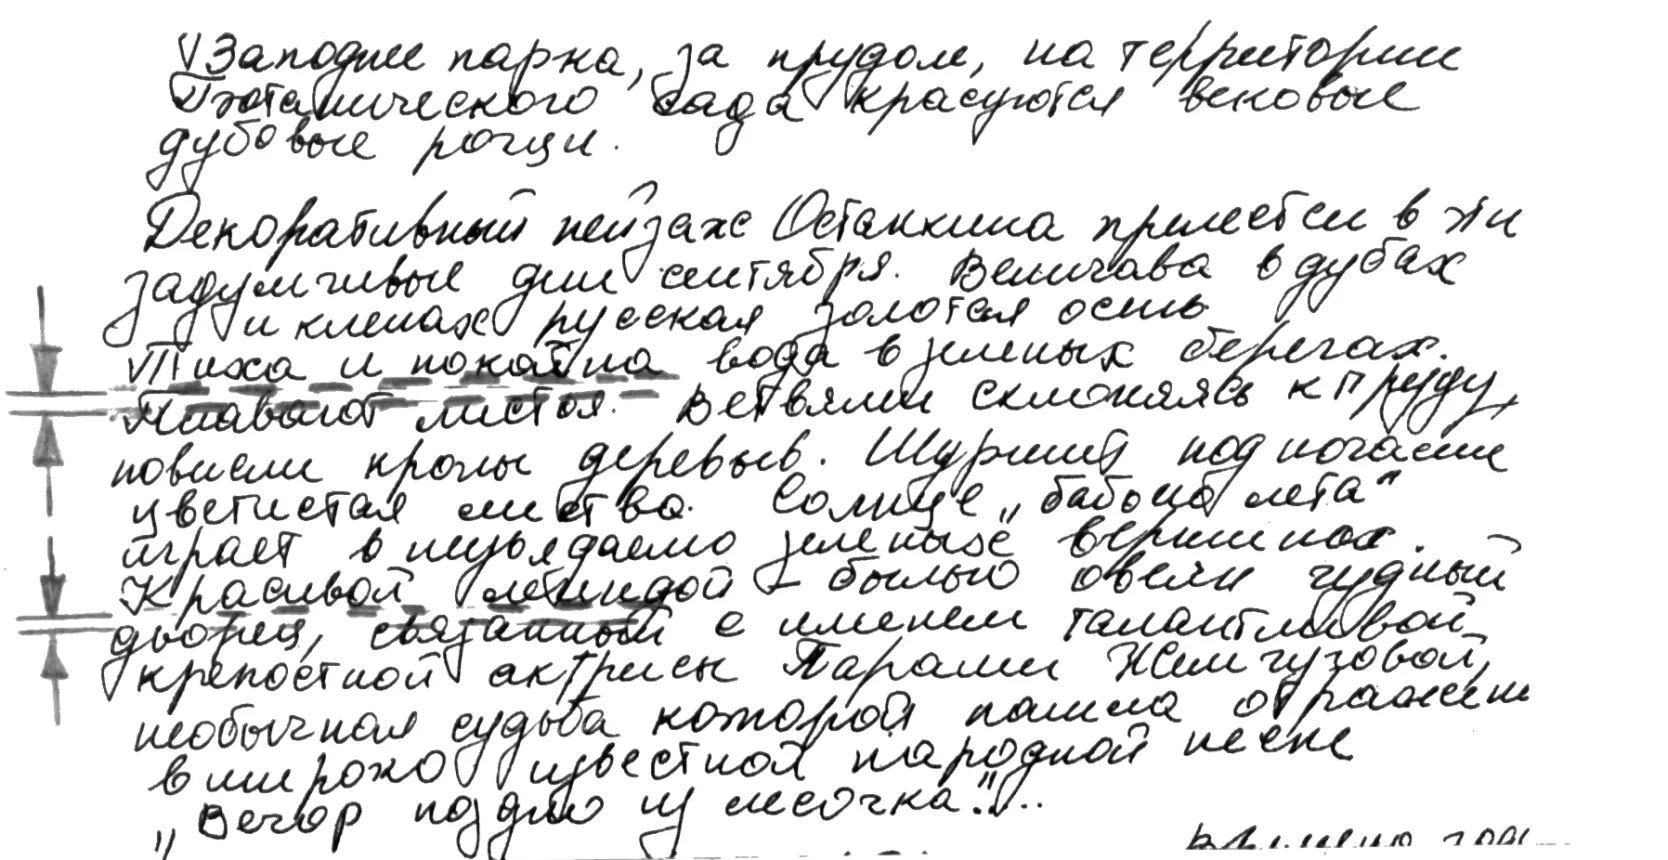 Западнее парка, за прудом, на территории
Ботанического сада красуются вековые
дубовые рощи.
Декоративный пейзаж Останкина прелестен в эти
задумчивые дни сентября. Величава в дубах
и кленах русская золотая осень
Тиха и покойна вода в зеленых берегах.
Плавают листья. Ветвями склоняясь к пруду,
повисли кроны деревьев. Шуршит под ногами
цветистая листва. Солнце „бабьего лета"
играет в неувядаемо зеленых вершинах.
Красивой легендой - былью овеян чудный
дворец, связанный с именем талантливой
крепостной актрисы Параши Жемчуговой,
необычная судьба которой нашла отражение
в широко известной народной песне
„Вечор поздно из лесочка"...